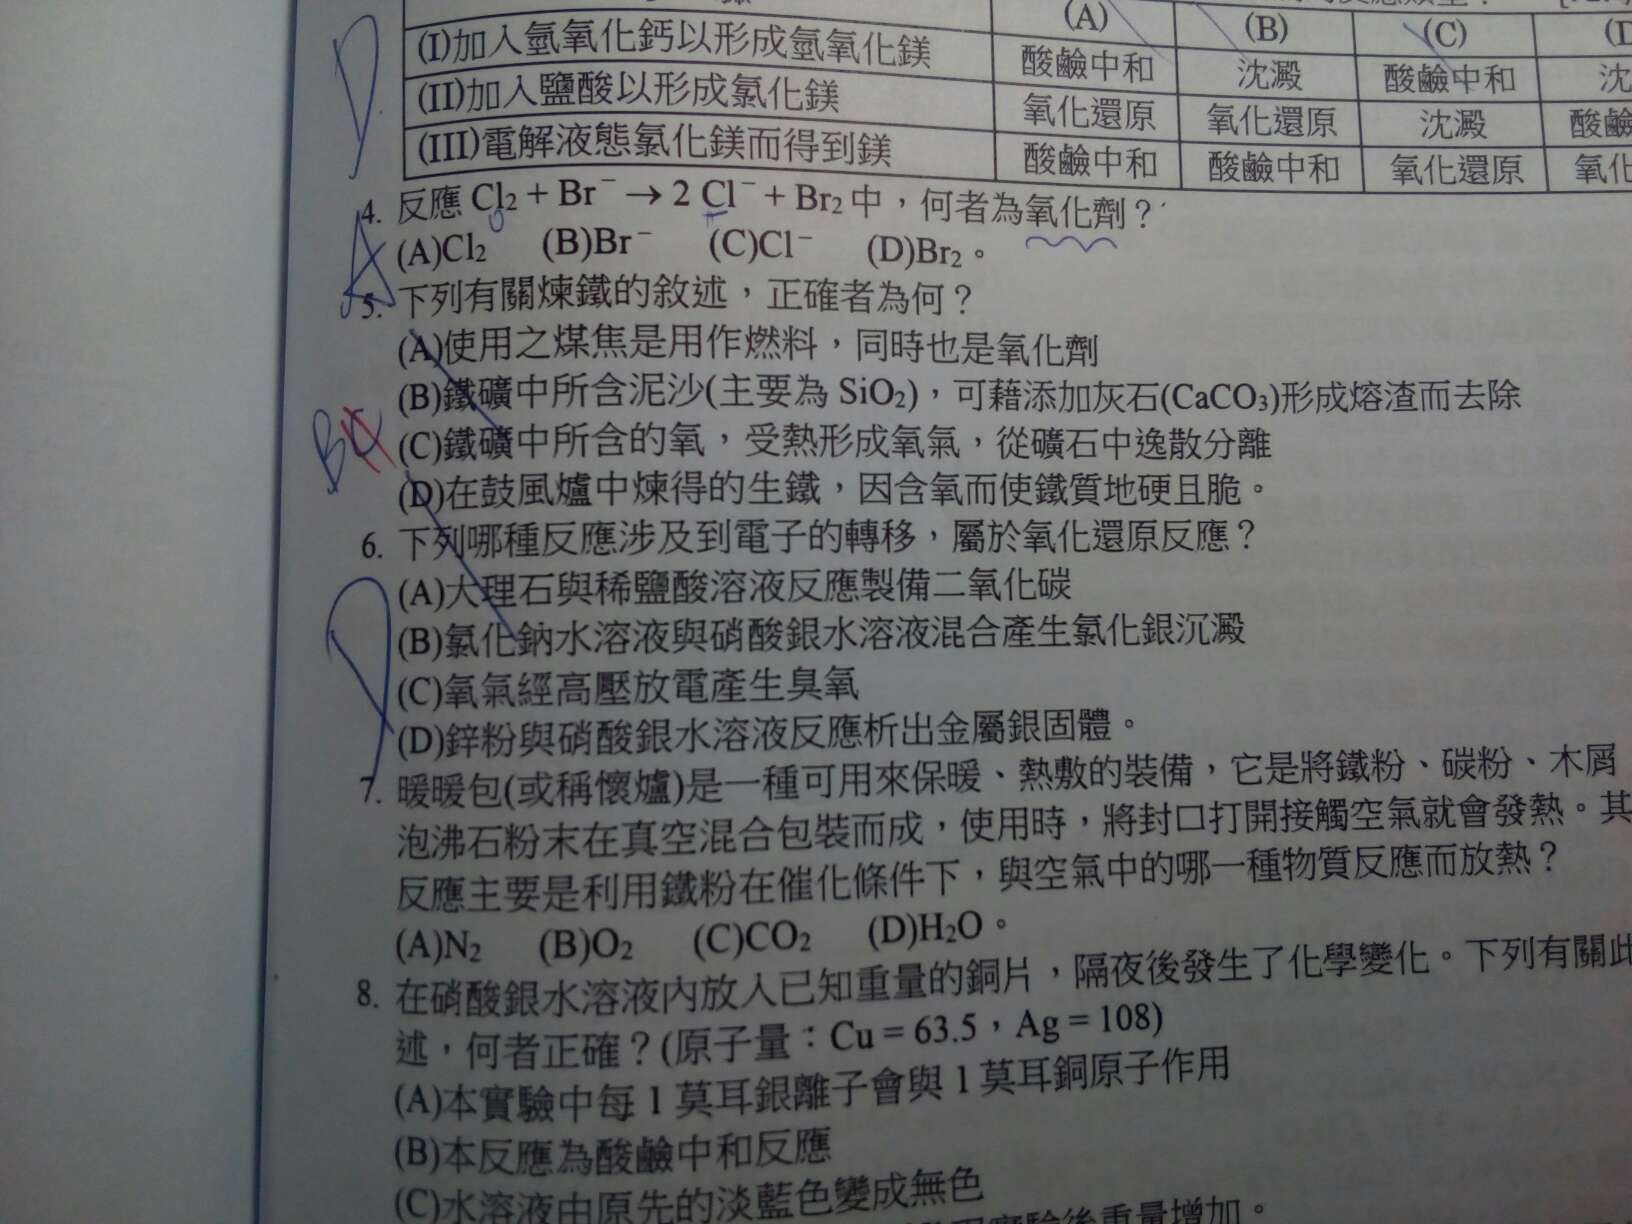 (A) (B) (C)
(I)加入氫氧化鈣以形成氫氧化鎂 酸鹼中和 沈澱 酸鹼中和 沈
(II)加入鹽酸以形成氯化鎂 氧化還原 氧化還原 沈澱 酸鹼
(III)電解液態氯化鎂而得到鎂 酸鹼中和 酸鹼中和 氧化還原 氧化
D
4. 反應 Cl₂ + Br⁻ → 2 Cl⁻ + Br₂ 中，何者為氧化劑？
A (A)Cl₂ (B)Br⁻ (C)Cl⁻ (D)Br₂。
5. 下列有關煉鐵的敘述，正確者為何？
(A)使用之煤焦是用作燃料，同時也是氧化劑
(B)鐵礦中所含泥沙(主要為 SiO₂)，可藉添加灰石(CaCO₃)形成熔渣而去除
B (C)鐵礦中所含的氧，受熱形成氧氣，從礦石中逸散分離
(D)在鼓風爐中煉得的生鐵，因含氧而使鐵質地硬且脆。
6. 下列哪種反應涉及到電子的轉移，屬於氧化還原反應？
(A)大理石與稀鹽酸溶液反應製備二氧化碳
(B)氯化鈉水溶液與硝酸銀水溶液混合產生氯化銀沉澱
D (C)氧氣經高壓放電產生臭氧
(D)鋅粉與硝酸銀水溶液反應析出金屬銀固體。
7. 暖暖包(或稱懷爐)是一種可用來保暖、熱敷的裝備，它是將鐵粉、碳粉、木屑
泡沸石粉末在真空混合包裝而成，使用時，將封口打開接觸空氣就會發熱。其
反應主要是利用鐵粉在催化條件下，與空氣中的哪一種物質反應而放熱？
(A)N₂ (B)O₂ (C)CO₂ (D)H₂O。
8. 在硝酸銀水溶液內放入已知重量的銅片，隔夜後發生了化學變化。下列有關此
述，何者正確？(原子量：Cu = 63.5，Ag = 108)
(A)本實驗中每 1 莫耳銀離子會與 1 莫耳銅原子作用
(B)本反應為酸鹼中和反應
(C)水溶液由原先的淡藍色變成無色
實驗後重量增加。